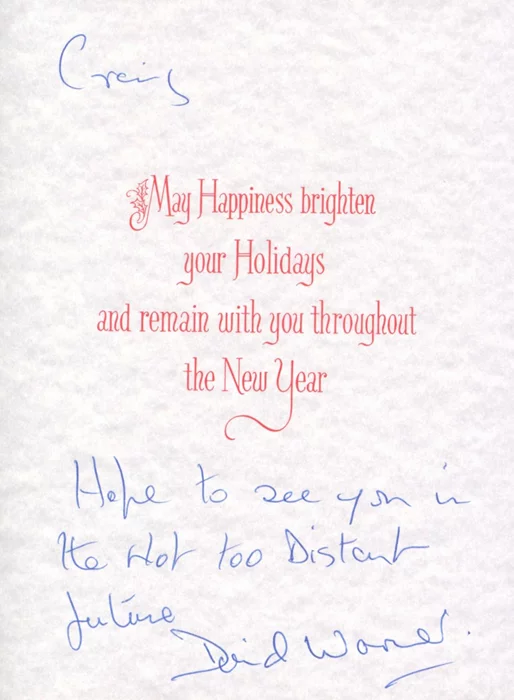 Craig
May Happiness brighten
your Holidays
and remain with you throughout
the New Year
Hope to see you in
the Not too Distant
future
David Warner.